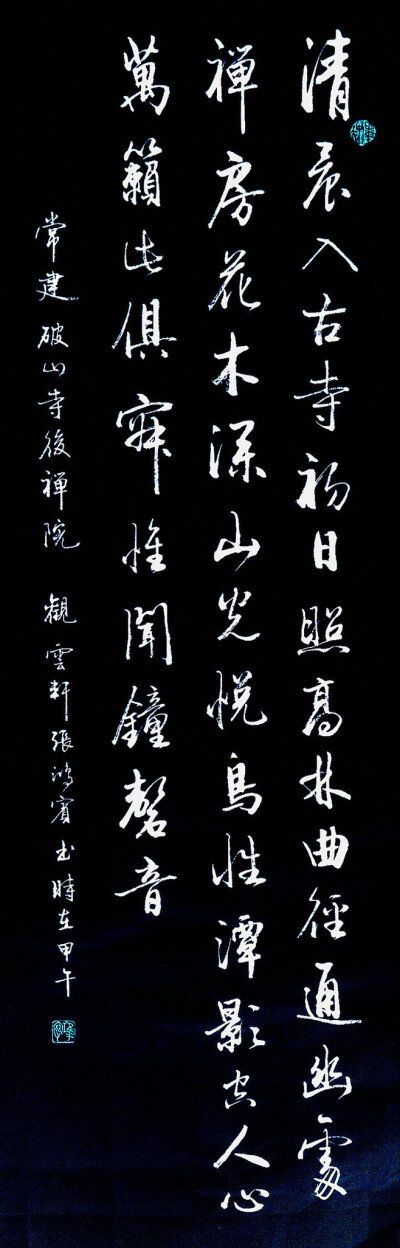 清晨入古寺初日照高林曲徑通幽處
禅房花木深山光悦鳥性潭影空人心
萬籟此俱寂惟聞鐘磬音
常建破山寺後禅院 觀雲軒張鴻賓书時在甲午